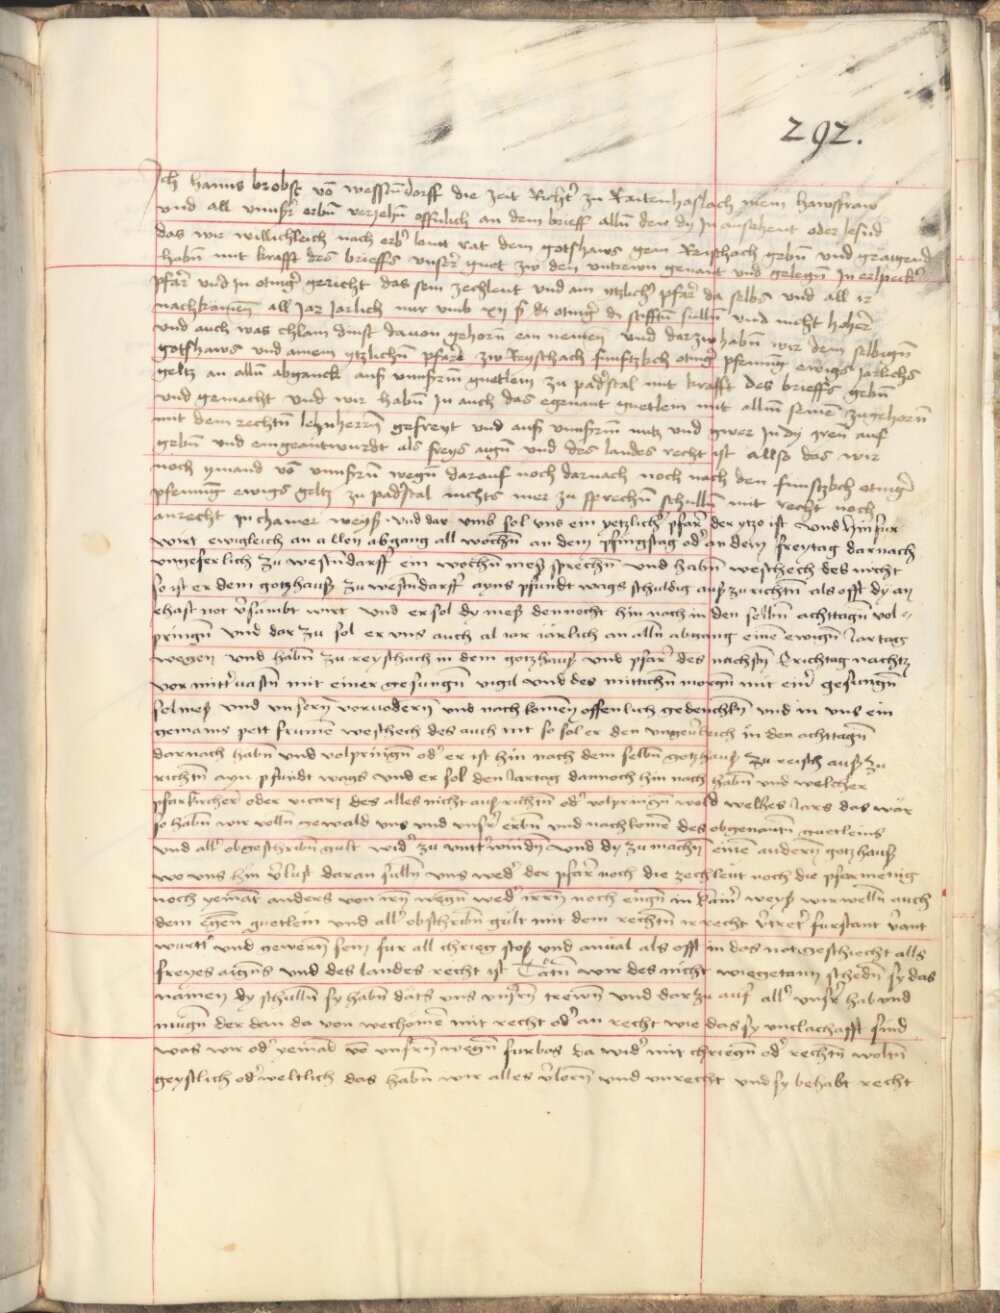 292.
Ich hanns brobst vō wesstndorff die zeit Richtʼ zu Raitenhaslach mein hawsfraw
und all unnsʼr erbn̄ veriehn̄ offnlich an dem brieff alln̄ den dy In ansehent oder lesnd
das wir willichleich nach erbʼ lewt rat dem gotshaws gen Reischach gebn̄ und
habn̄ mit krafft des brieffs unsʼr guet zw den untrewn genant und gelegn̄ In
pfarʼ und In otingʼ gericht das sein zechleut und ain ytzlichʼ pfarʼ da selbs und all ir
nachkamen̄ all Jar Jarlich nur umb xij ₰ otingʼ und nicht hoherʼ
und auch was chlain dinst dauon gehorn̄ ein nemen̄ und darzw habn̄ wir dem selbign̄
gotshaws und ainem ytzlichn̄ pfarʼ zw Reyschach funftzkch otingʼ pfenning ewigs Jarlichs
geltz an alln̄ abganck auf unnsʼrm guetlein zu padʼstal mit krafft des brieffs gebn̄
und gemacht und wir habn̄ In auch das egenant guetlein mit allm̄ seinē zugehorn̄
mit dem rechtn̄ lehnherrn̄ gefreyt und auss unnsʼrm nutz und gwer In dy Iren̄ auf
gebn̄ und eingeantwurdt als freys aign̄ und des landes recht ist allso das wir
noch ymand vō unnsʼrn̄ wegn̄ darauf noch darnach noch nach den funftzkch otingʼ
pfenning ewigs geltz zu padʼstal nichts mer zu sprechn̄ schulln̄ mit recht noch
anrecht In chainer weyß · und dar umb sol uns ein yetzlichʼ pfarʼ der ytzo ist und hinfur
wirt ewigleich an allen abgang all wochn̄ an dem pfingstag odʼ an dem freytag darnach
ungeferlich zu westndarff ein wochn̄ meß sprechn̄ und habn̄ weschech des nicht
so ist er dem gotzhauß zu westndarff ayns pfundt wags schuldig auß zu richtn̄ als offt dy an
ehaft not vʼsambt wirt und er sol dy meß dennocht hin nach in den selbn̄ achttagn̄ vol-
pringn̄ und dar zu sol er uns auch al iar iärlich an alln̄ abgang einē ewign̄ Iartag
wegen und habn̄ zu reyschach in dem gotzhauß und pfarʼ des nachstn̄ Erichtag nachtz
vor mittʼvastn̄ mit einer gesungn̄ vigil und des mittichn̄ morgn̄ mit einʼ gesungn̄
selmeß und unsern̄ vorvodern̄ und nachkomen̄ offenlich gedenchkn̄ und in uns ein
gemains pett frumen̄ weschech des auch nit so sol er den in den achttagn̄
darnach habn̄ und volpringn̄ odʼ er ist hin nach dem selbn̄ gotzhauß zu reisch auß zu
richtn̄ ayn pfundt wags und er sol den Iartag dannoch hin nach habn̄ und welcher
pfarkircher oder vicarj des alles nicht auß richtn̄ odʼ volpringn̄ wold welhes Iars das wär
so habn̄ wir volln̄ gewald uns und unsʼr erbn̄ und nachkomē des obgenantn̄ guetleins
und allʼ obgeschribn̄ gult widʼ zu untʼwindn̄ und dy zu machn̄ einē andern̄ gotzhauß
wo uns hin vʼlust daran sulln̄ uns wedʼ der pfarʼ noch die zechleut noch die pfarmenig
noch yemāt anders von irn̄ wegn̄ wedʼ irrn̄ noch engn̄ in kainʼ weyß wir welln̄ auch
dem egen̄ guetlein und allʼ obschribn̄ gult mit dem rechtn̄ ir recht vʼtretʼ furstant vʼant
wurttʼ und gewern̄ sein fur all chrieg stoß und anual als offt in das not geschiecht alls
freyes aigns und des landes recht ist Tätn̄ wir des nicht wiegetann schedn̄ sy das
nämen dy schulln̄ sy habn̄ dats uns unsʼrn̄ trewn̄ und dar zu auf allʼ unsʼr hab und
mugn̄ der dan da von wechomē mit recht odʼ an recht wie das sy unclachafft sind
was wir odʼ yemād vō unsʼrn̄ wegn̄ furbas da widʼ mit chriegn̄ odʼ rechtn̄ woltn̄
geystlich odʼ weltlich das habn̄ wir alles vʼlorn̄ und unrecht und sy behabt recht